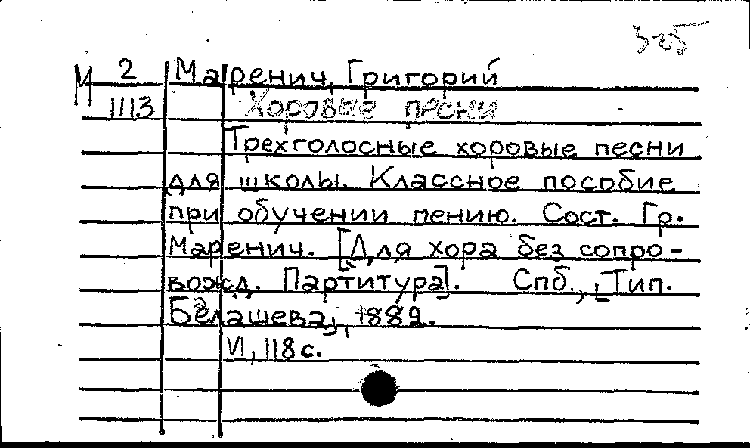 3-25
М 2 Маренич, Григорий
1113 Хоровые песни
Трехголосные хоровые песни
для школы. Классное пособие
при обучении пению. Сост. Гр.
Маренич. [Для хора без сопро-
вожд. Партитура]. Спб., Тип.
Белашева, 1882.
VI, 118 с.